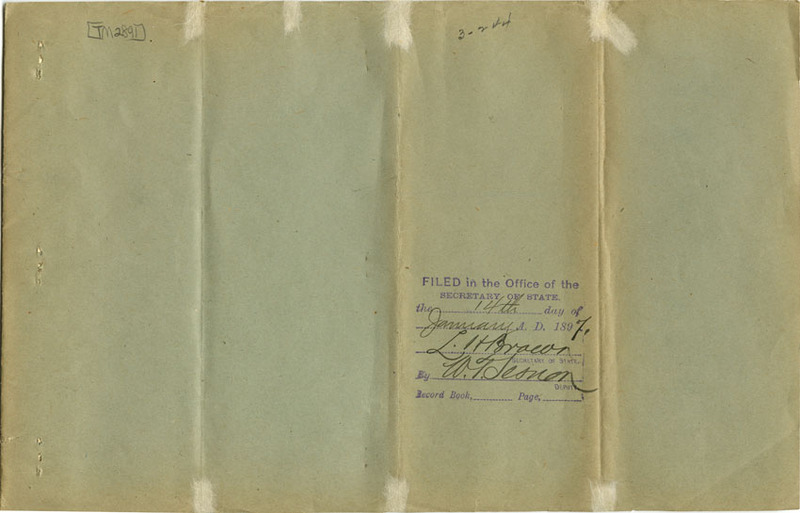 [TM2891].
3-244
FILED in the Office of the
SECRETARY OF STATE.
the 14th day of
January A. D. 1897.
L. H. Brown
SECRETARY OF STATE.
By W. T. Sesnon
DEPUTY.
Record Book, Page,